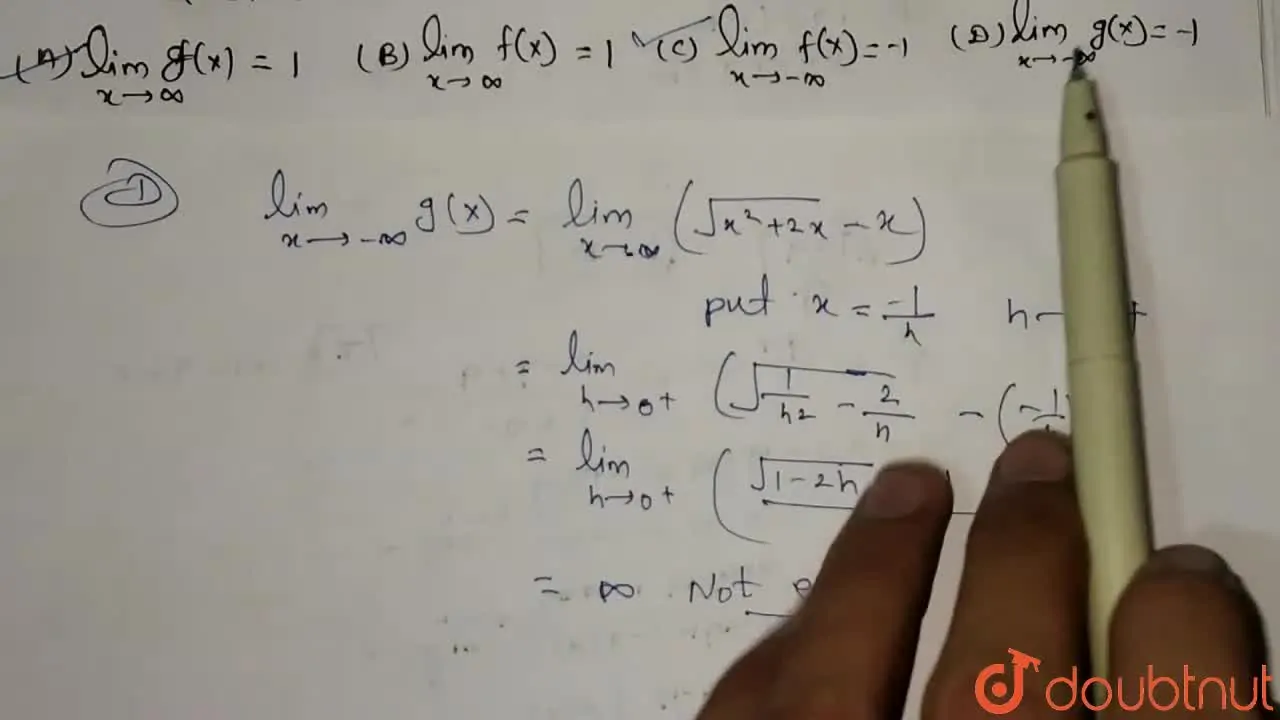 (A) lim x→∞ g(x) = 1 (B) lim x→∞ f(x) = 1 (C) lim x→-∞ f(x) = -1 (D) lim x→-∞ g(x) = -1
D lim x→-∞ g(x) = lim x→-∞ (√x²+2x - x)
put x = -1/h h
= lim h→0+ (√1/h² - 2/h - (-1/
= lim h→0+ (√1-2h
= ∞ Not
doubtnut